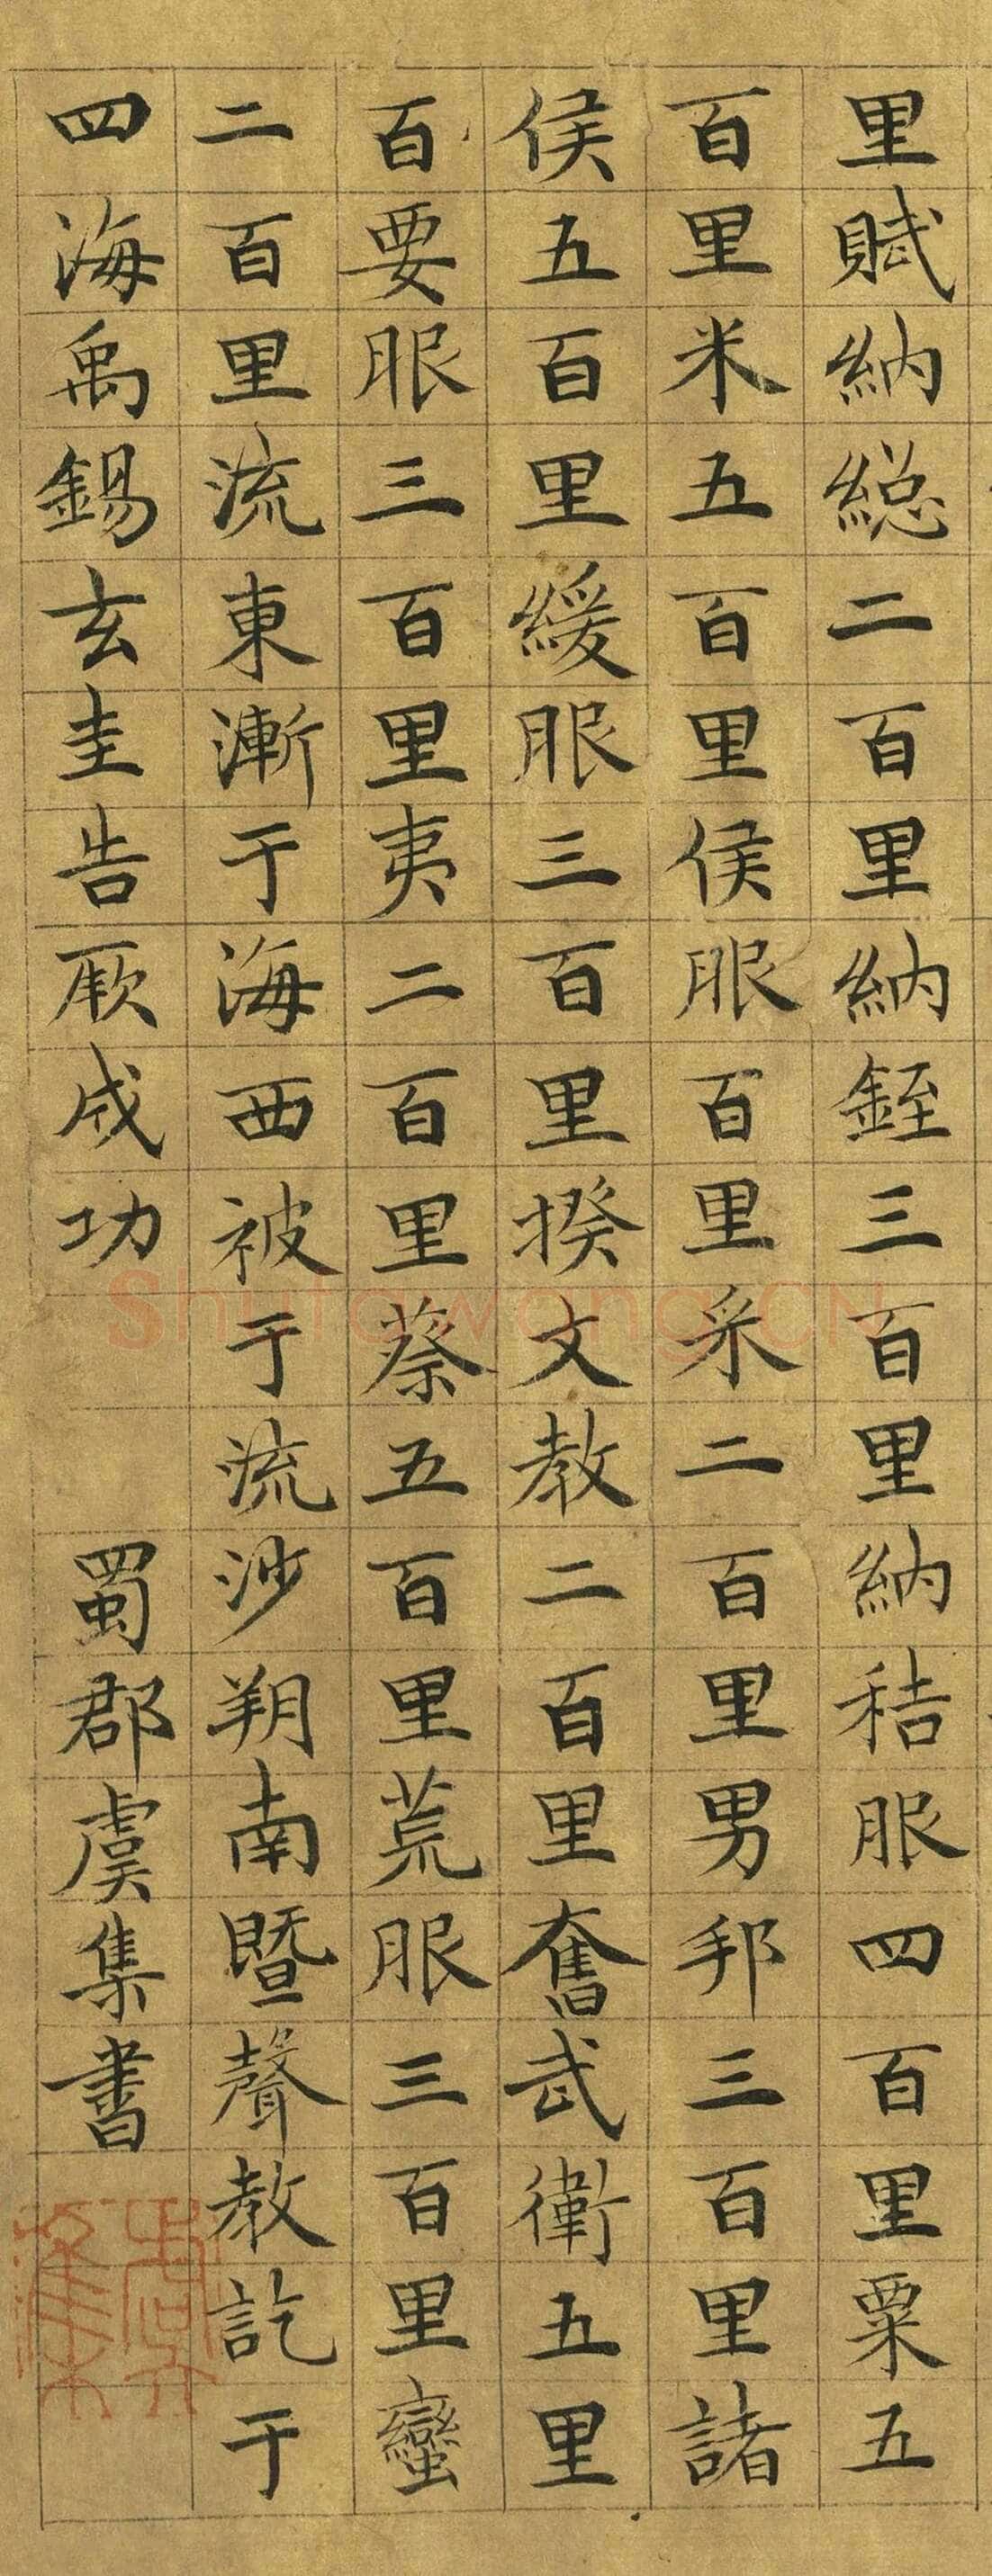 里賦納緫二百里納銍三百里納秸服四百里粟五
百里米五百里侯服百里采二百里男邦三百里諸
侯五百里緩服三百里揆文教二百里奮武衛五里
百要服三百里夷二百里蔡五百里荒服三百里蠻
二百里流東漸于海西被于流沙朔南暨聲教訖于
四海禹錫玄圭告厥成功
蜀郡虞集書
虞集
Shufawang.CN